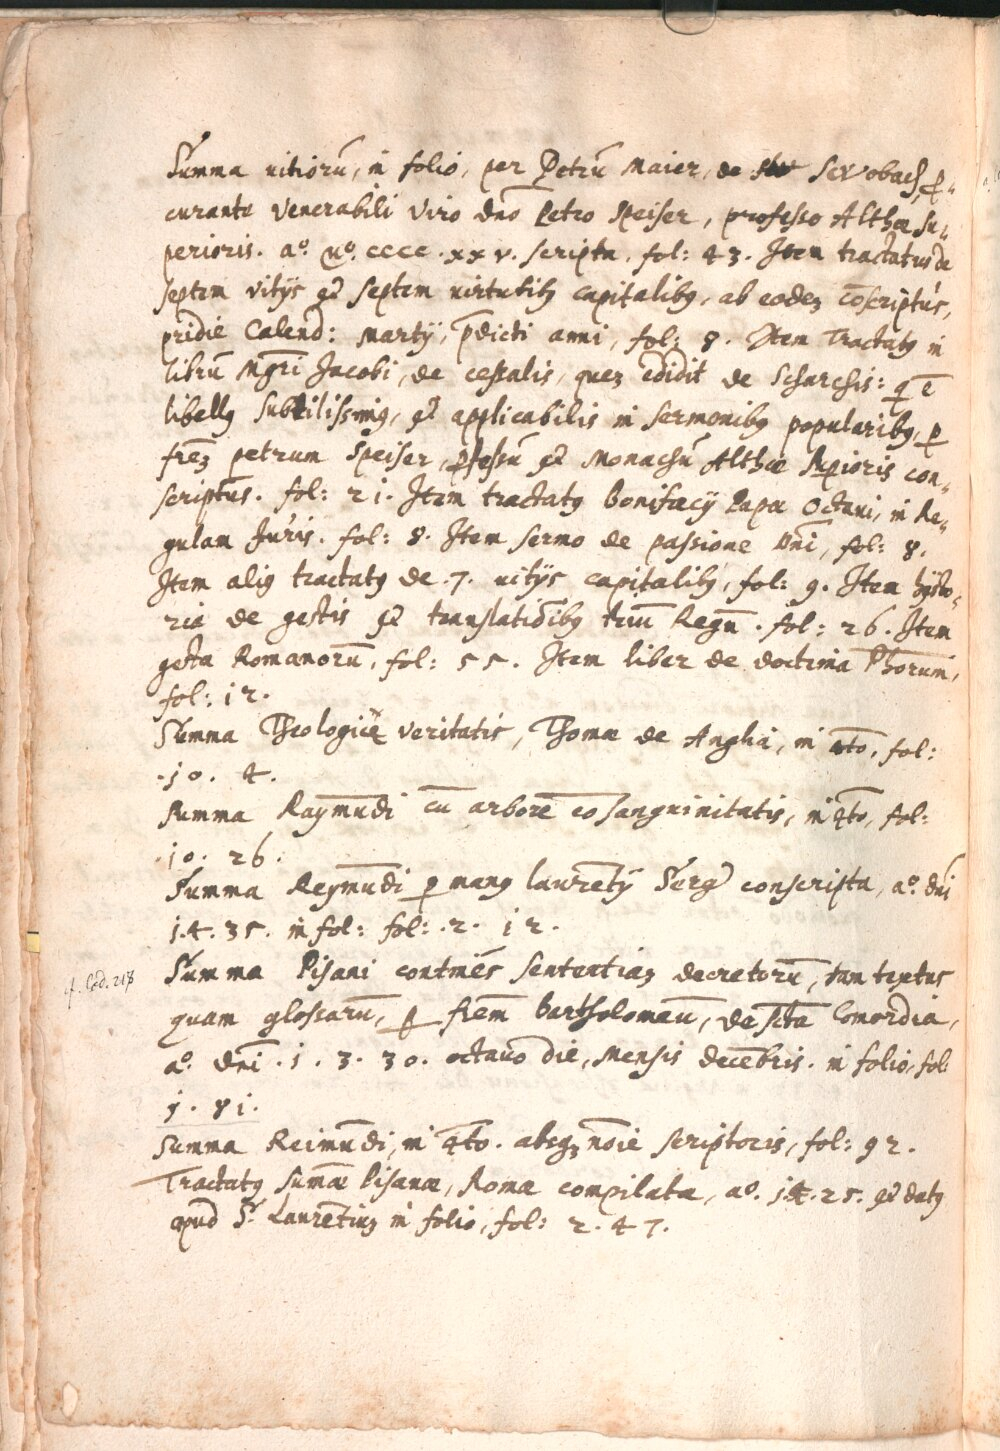 Summa uitiorū, in folio, per Petrū Maier, de Scvobach, p̲-
curante venerabili viro dn̄o Petro Speiser, professo Althæ Su-
perioris. aº. Mº. cccc. xxv. scripta. fol: 43. Item tractatus de
septem vitijs et septem uirtutibꝫ capitalibꝫ, ab eodeꝫ cōscriptus,
pridie Calend: Martij, p̄dicti anni, fol: 8. Item Tractatꝰ in
librū Mgr̄i Jacobi, de cessalis, queꝫ ędidit de Schachis: q̲ ē
libellꝰ subtilissimꝰ, et applicabilis in sermonibꝫ popularibꝫ, p̲
frēꝫ petrum Speiser, p̲fessū et Monachū Althæ Sup̲ioris con-
scriptus. fol: 21. Item tractatꝰ Bonifacij Papæ Octaui, in Re-
gulam Juris. fol: 8. Item sermo de passione Dn̄i, fol: 8.
Item aliꝰ tractatꝰ de .7. uitijs capitalibꝫ, fol: 9. Item hysto-
ria de gestis et translatiōibꝫ triū Regū. fol: 26. Item
gesta Romanorū, fol: 55. Item liber de doctrina Ph̄orum,
fol: 12.
Summa Theologicæ veritatis, Thomæ de Anglia, in 4to, fol:
.10. 4.
Summa Raymūdi cū arbore cōsanguinitatis, in 4to, fol:
.10. 26.
Summa Reymūdi p̲ manꝰ laurētij conscripta, aº. dn̄i
1.4.35. in fol: fol: .2. 12.
cf. Cod. 218
Summa Pisani contines sententiaꝫ decretorū, tam textus
quam glossarū, p̲ frēm Bartholomæū, de sctā Concordia,
aº. dn̄i .1.3.30. octauo die, mensis decēbris. in folio, fol:
1. 81.
Summa Reimūdi, in 4to. absqꝫ nōie scriptoris, fol: 92.
Tractatꝰ Sum̄æ Pisanæ, Romæ compilata, aº. 14.25. et datꝰ
apud S. Laurētiuꝫ in folio, fol: 2.47.